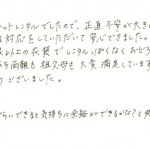 ネットレンタルでしたので、正直不安が大き
な対応をしていただいて安心できました。
以上の衣装でレンタルっぽくなくおどろ
ろう両親も祖父母も大変満足していま
うございました。
らいできると気持ちに余裕ができるかな?と